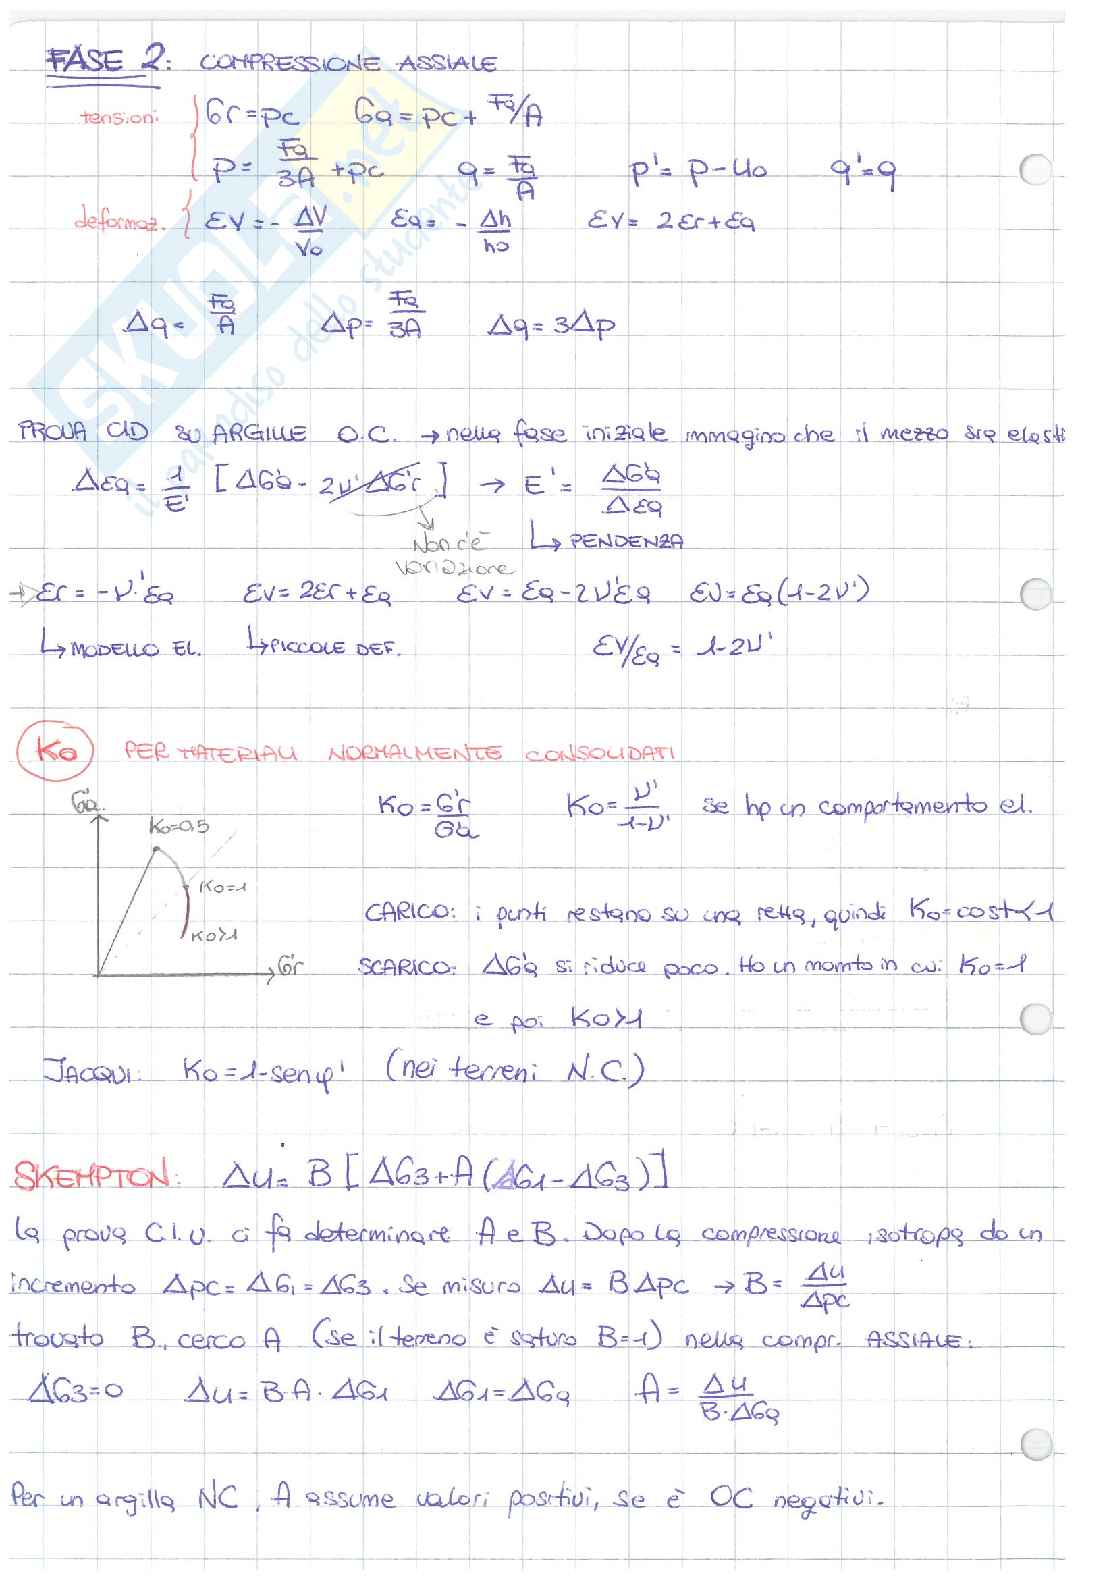 FASE 2: COMPRESSIONE ASSIALE
tensioni σr=pc σa=pc+Fa/A
p=Fa/3A+pc q=Fa/A p'=p-u0 q'=q
deformaz. εv=-ΔV/V0 εa=-Δh/h0 εv=2εr+εa
Δq=Fa/A Δp=Fa/3A Δq=3Δp
PROVA CID su ARGILLE O.C. → nella fase iniziale immagino che il mezzo sia elasti
Δεa=1/E' [Δσ'a-2ν'Δσ'r] → E'=Δσ'a/Δεa
Non c'è variazione
↳ PENDENZA
→ εr=-ν'·εa εv=2εr+εa εv=εa-2ν'εa εv=εa(1-2ν')
↳ MODELLO EL. ↳ PICCOLE DEF. εv/εa=1-2ν'
K0 PER MATERIALI NORMALMENTE CONSOLIDATI
σ'a.
K0=0,5
K0=1
K0>1
σ'r
K0=σ'r/σ'a K0=ν'/1-ν' se hp un comportamento el.
CARICO: i punti restano su una retta, quindi K0=cost<1
SCARICO: Δσ'a si riduce poco. Ho un momto in cui K0=1
e poi K0>1
JACQUI: K0=1-senφ' (nei terreni N.C.)
SKEMPTON: Δu=B[Δσ3+A(Δσ1-Δσ3)]
la prova C.I.U. ci fa determinare A e B. Dopo la compressione isotropa do un
incremento Δpc=Δσ1=Δσ3. Se misuro Δu=BΔpc → B=Δu/Δpc
trovato B, cerco A (se il terreno è saturo B=1) nella compr. ASSIALE:
Δσ3=0 Δu=B·A·Δσ1 Δσ1=Δσa A=Δu/B·Δσa
Per un argilla NC, A assume valori positivi, se è OC negativi.
SKUOLA.net
il paradiso dello studente